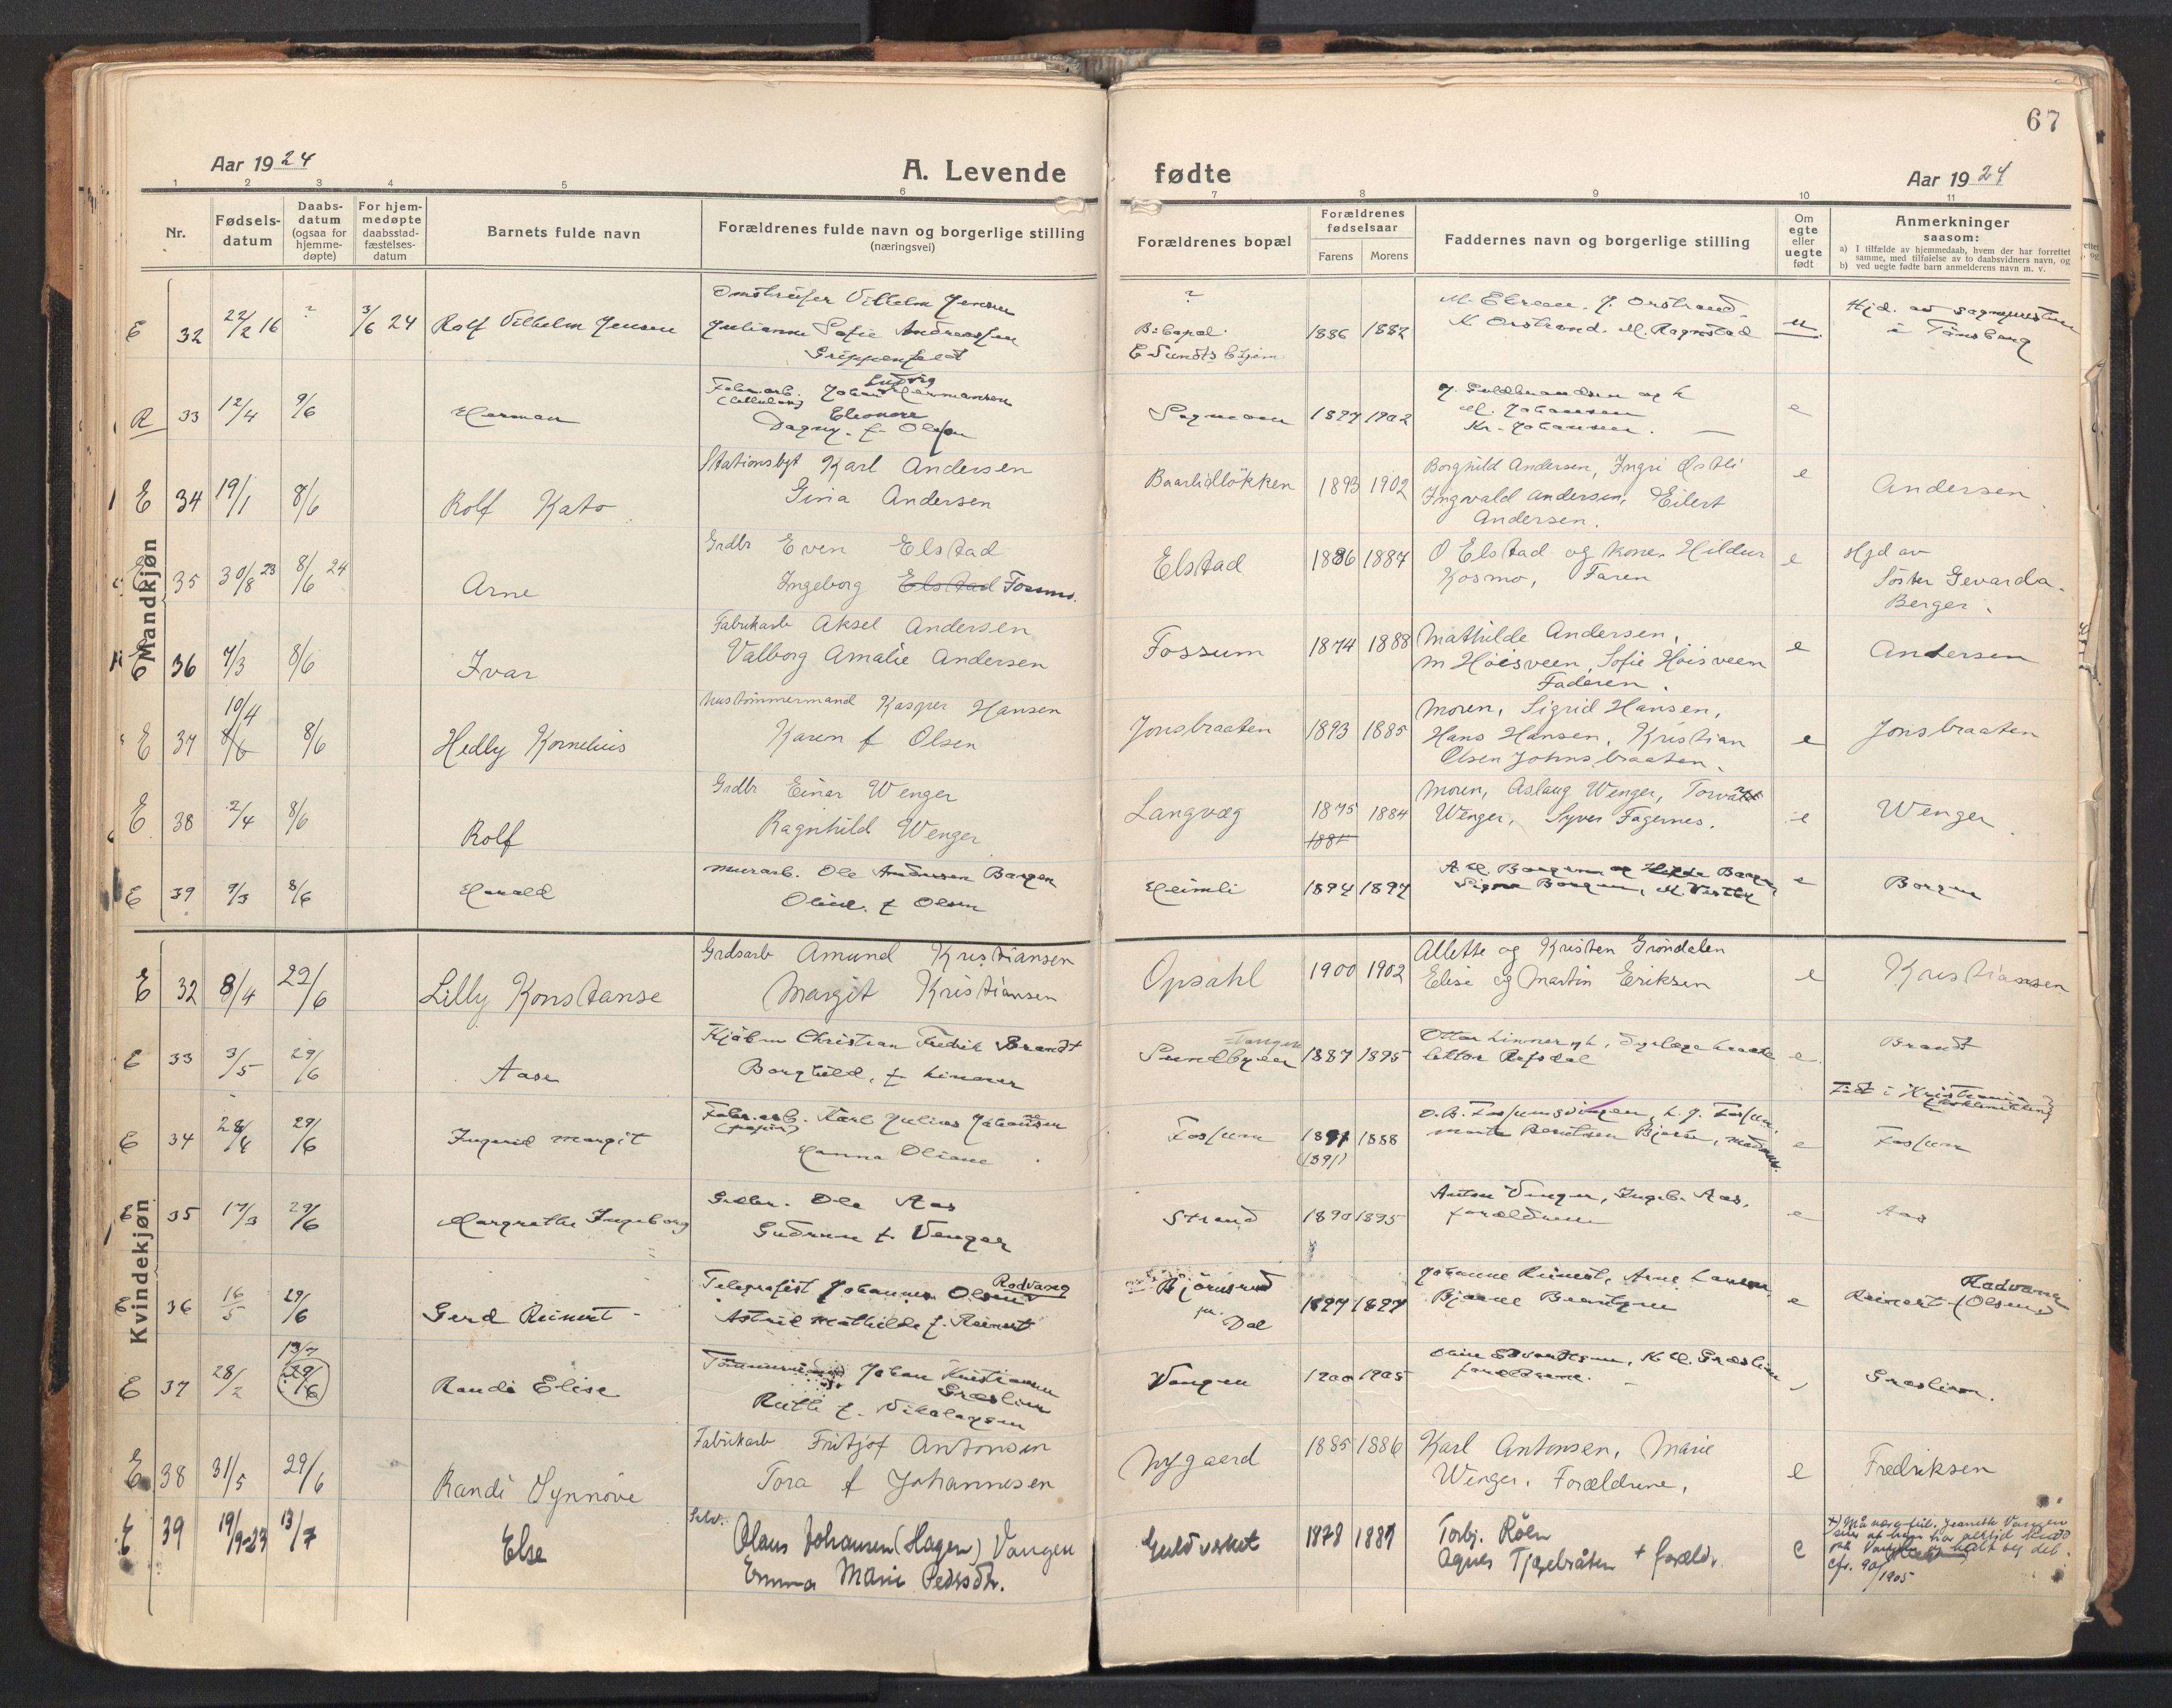 67
Aar 1924
A. Levende fødte
Aar 1924
1 2 3 4 5 6 7 8 9 10 11
Nr.
Fødsels-
datum
Daabs-
datum
(ogsaa for
hjemme-
døpte)
For hjem-
medøpte
daabsstad-
fæstelses-
datum
Barnets fulde navn
Forældrenes fulde navn og borgerlige stilling
(næringsvei)
Forældrenes bopæl
Forældrenes
fødselsaar
Farens Morens
Faddernes navn og borgerlige stilling
Om
egte
eller
uegte
født
Anmerkninger
saasom:
a) I tilfælde av hjemmedaab, hvem der har forrettet
samme, med tilføielse av to daabsvidners navn, og
b) ved uegte fødte barn anmelderens navn m. v.
Mandkjøn
E 32 22/2 16 ? 3/6 24 Rolf Vilhelm Jensen
Vilhelm Jensen
Julianne Sofie Andreassen
Grippenfeldt
?
1886 1882
M. Ragnstad
u
Hjd. av sognepresten
i Tönsberg
R 33 12/4 9/6 Herman
Fabr.arb. Johan Ludvig Hermansen
(cellulose) Eleonore
Dagny f. Olsen
Sogmoen 1897 1902
J. Guldbrandsen og h
M. Johansen
Kr. Johansen. —
e
E 34 19/1 8/6 Rolf Kato
Stationsbgt Karl Andersen
Gina Andersen
Baarlidløkken 1893 1902
Borghild Andersen, Ingri Østli
Ingvald Andersen, Eilert
Andersen.
e
Andersen
E 35 30/8 23 8/6 24 Arne
Grdbr Even Elstad
Ingeborg Elstad Fosmo.
Elstad 1886 1887
O Elstad og kone, Hildur
Kosmo, Faren
e
Hjd av
Söster Gevarda
Berger.
E 36 7/3 8/6 Ivar
Fabrikarb Aksel Andersen
Valborg Amalie Andersen
Fossum 1874 1888
Mathilde Andersen,
M Höisveen, Sofie Höisveen
Faderen.
e
Andersen
E 37 10/4 8/6 8/6 Hedly Kornelius
Hustömmermand Kasper Hansen
Karen f Olsen
Jonsbraaten 1893 1885
Moren, Sigrid Hansen,
Hans Hansen, Kristian
Olsen Johnsbraaten.
e
Jonsbraaten
E 38 2/4 8/6 Rolf
Grdbr Einar Wenger
Ragnhild Wenger
Langvæg 1875 1884
Moren, Aslaug Wenger, Torvald
Wenger, Syver Fagernes.
e
Wenger
E 39 9/3 8/6 Harald
Murarb. Ole Andersen Borgen
Oline f Olsen
Heimli 1894 1897
Signe Borgen, M Vestby
e
Borgen
Kvindekjøn
E 32 8/4 29/6 Lilly Konstanse
Grdsarb Amund Kristiansen
Margit Kristiansen
Opsahl 1900 1902
Allette og Kristen Gröndalen
Elise og Martin Eriksen
e
Kristiansen
E 33 3/5 29/6 Aase
Kjöbm Christian Fredrik Brandt
Borghild, f. Linner
Tangen
Sundbyen 1887 1895
lektor Refsdal
e
Brandt
Födt i Kristiania
E 34 28/4 29/6 Ingerid Margit
Fabr.arb. Karl Julius Johansen
(papir)
Hanna Oliane
Fossum 1891 1888
(1891)
Marta Berntsen Bjerke,
e
Fossum
E 35 17/3 29/6 Margrethe Ingeborg
Grdbr. Ole Aas
Gudrun f. Venger
Strand 1890 1895
Anton Venger, Ingeb. Aas,
forældrene
e
Aas
E 36 16/5 29/6 Gerd Reinert
Telegrafist Johannes Olsen Rodvang
Astrid Mathilde f. Reinert
Björnsrud
pr. Dal
1897 1897
Johanne Reinert, Arne Larsen,
Bjarne Berntzen
e
Rodvang
Reinert (Olsen)
E 37 28/2 13/7 29/6 Randi Elise
Tömmermand Johan Kristiansen
Græslien
Ruth f. Nikolaysen
Vangen 1900 1905
forældrene.
Græslien.
E 38 31/5 29/6 Randi Synnöve
Fabrikarb Fritjof Antonsen
Tora f Johannesen
Nygaard 1885 1886
Karl Antonsen, Marie
Wenger, Forældrene,
e
Fredriksen
E 39 19/9-23 13/7 Else
Selv. Olaus Johansen (Hagen) Vangen
Emma Marie Pedersdtr.
Guldverket 1878 1887
Torbj. Röen
Agnes Tjæelråten + foreldr.
e
cfr. 90/1905